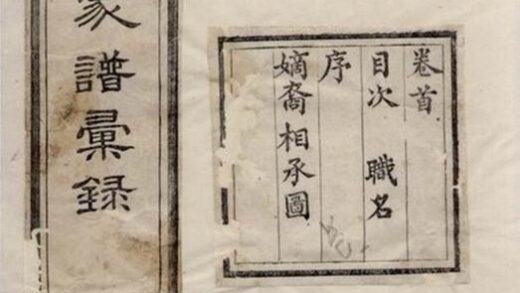 卷首
目次 職名
序
嫡裔相承圖
家譜彙録